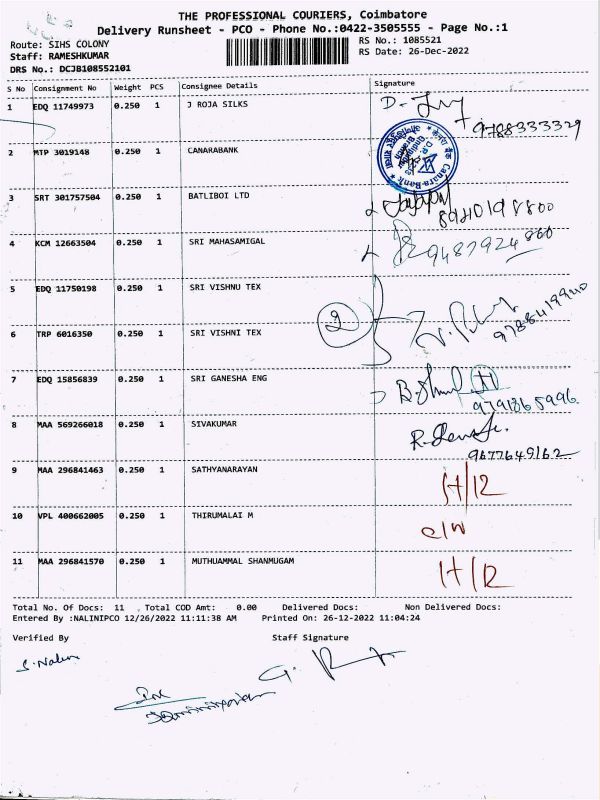 THE PROFESSIONAL COURIERS, Coimbatore
Delivery Runsheet - PCO - Phone No.:0422-3505555 - Page No.:1
Route: SIHS COLONY
RS No.: 1085521
Staff: RAMESHKUMAR
RS Date: 26-Dec-2022
DRS No.: DCJB108552101
S No Consignment No Weight PCS Consignee Details Signature
1 EDQ 11749973 0.250 1 J ROJA SILKS
9788333329
2 MTP 3019148 0.250 1 CANARABANK
3 SRT 301757504 0.250 1 BATLIBOI LTD
8940198800
4 KCM 12663504 0.250 1 SRI MAHASAMIGAL
9487924860
5 EDQ 11750198 0.250 1 SRI VISHNU TEX
2
9788419940
6 TRP 6016350 0.250 1 SRI VISHNI TEX
7 EDQ 15856839 0.250 1 SRI GANESHA ENG
9791865996
8 MAA 569266018 0.250 1 SIVAKUMAR
9677649162
9 MAA 296841463 0.250 1 SATHYANARAYAN
10 VPL 400662005 0.250 1 THIRUMALAI M
11 MAA 296841570 0.250 1 MUTHUAMMAL SHANMUGAM
Total No. Of Docs: 11 Total COD Amt: 0.00 Delivered Docs: Non Delivered Docs:
Entered By :NALINIPCO 12/26/2022 11:11:38 AM Printed On: 26-12-2022 11:04:24
Verified By Staff Signature
S. Nalini